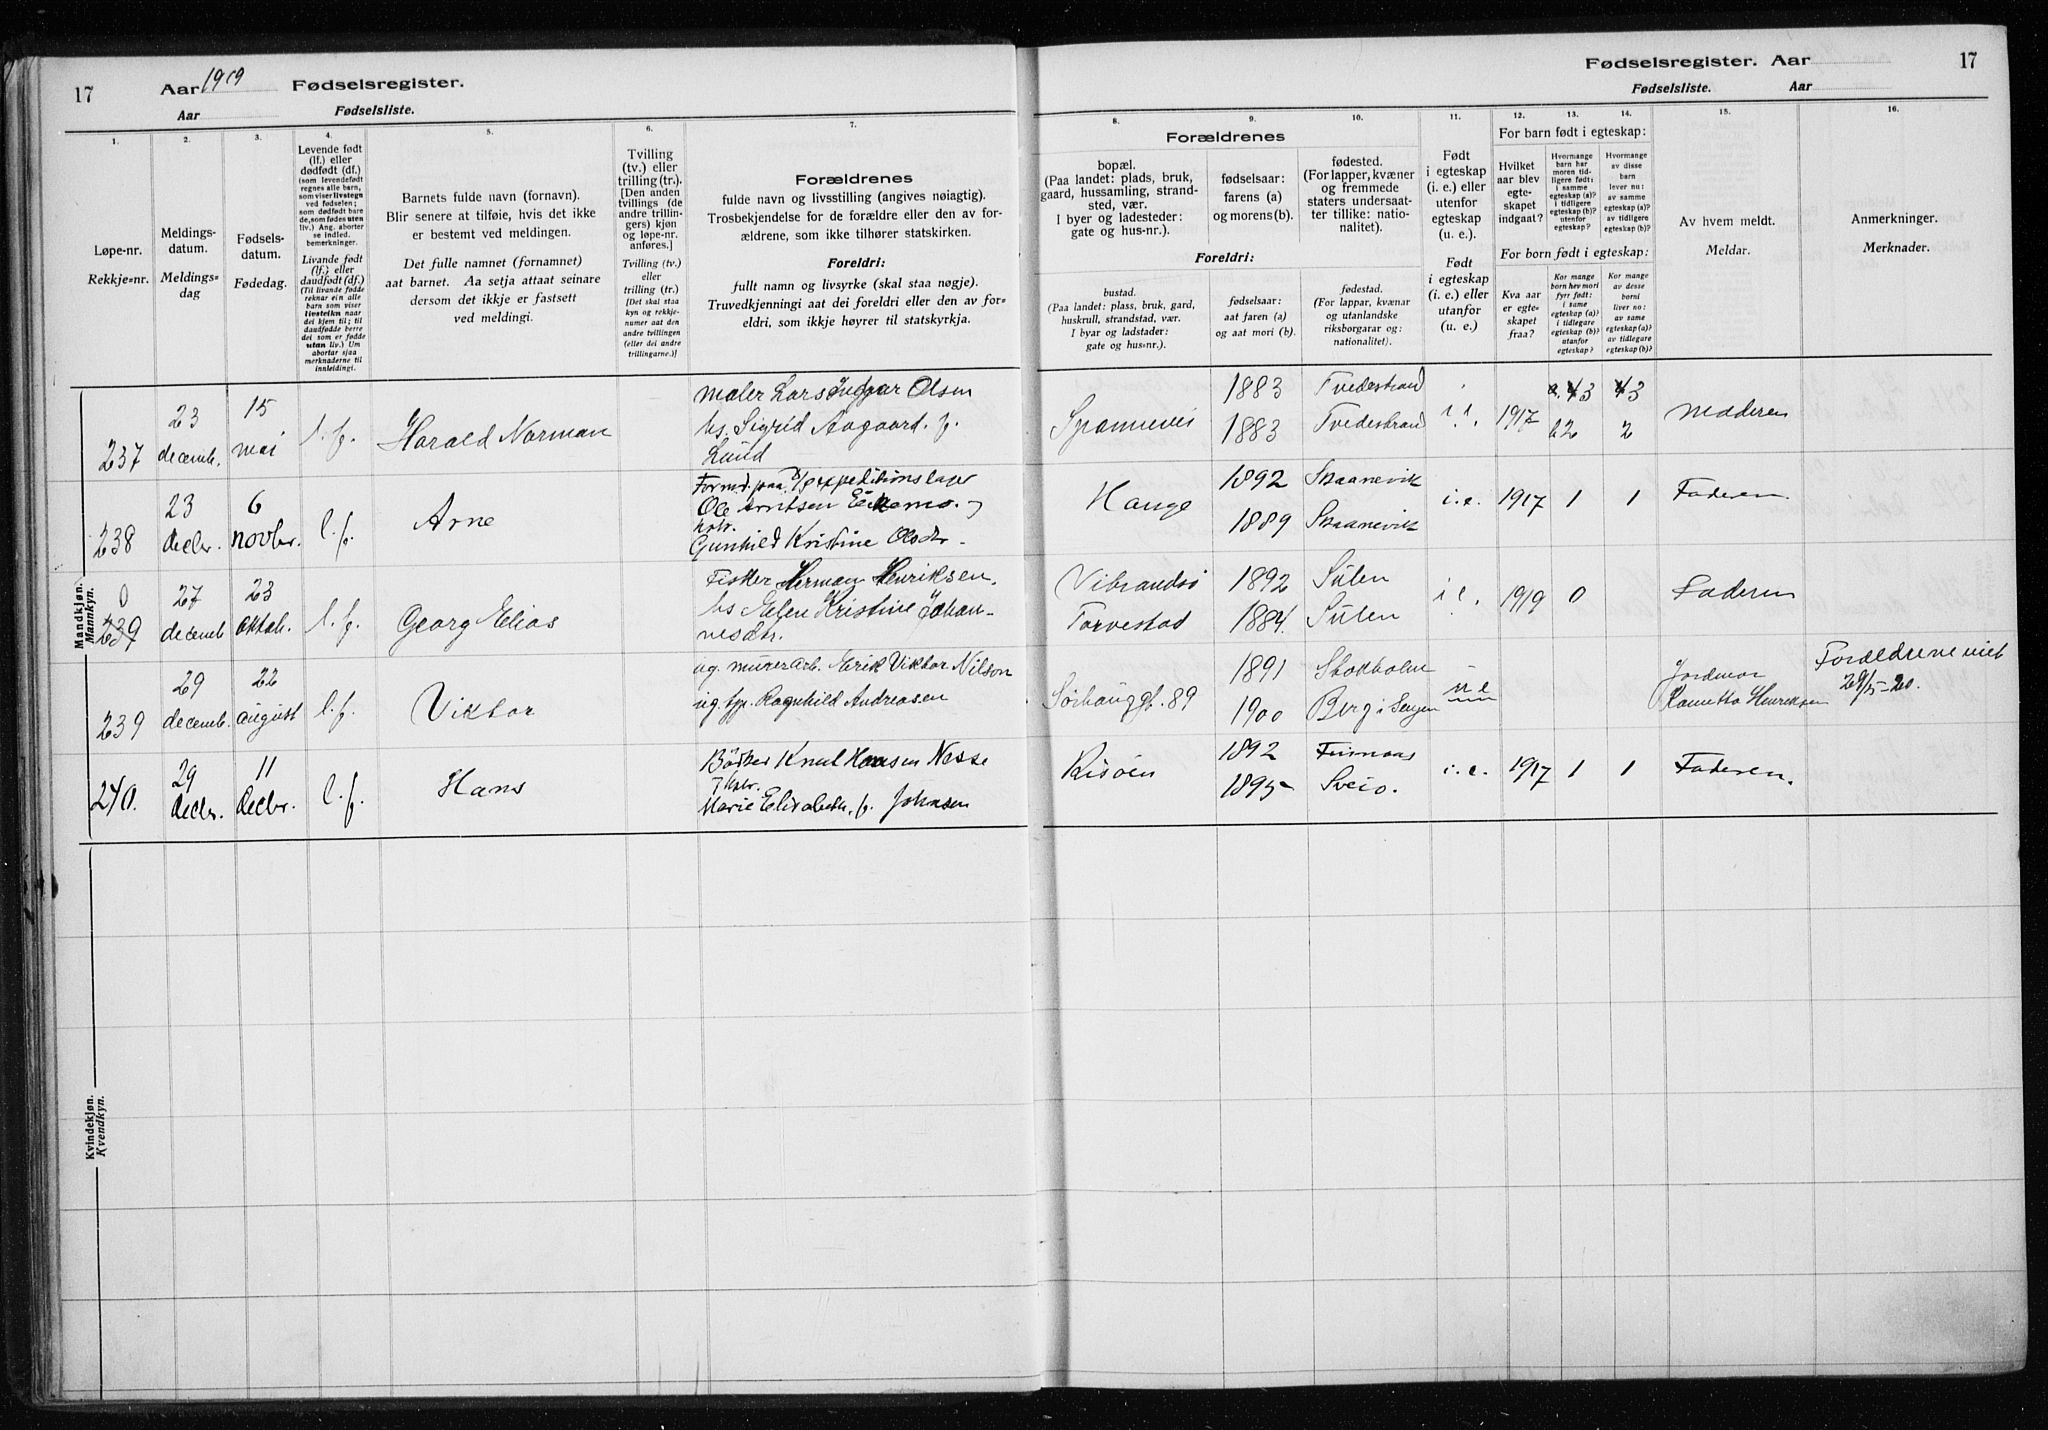 17 Aar 1919 Fødselsregister.
Aar Fødselsliste.
Fødselsregister. Aar 17
Fødselsliste. Aar
1. 2. 3. 4. 5. 6. 7.
Løpe-nr.
Rekkje=nr.
Meldings-
datum.
Meldings=
dag
Fødsels-
datum.
Fødedag.
Levende født
(lf.) eller
dødfødt (df.)
(som levendefødt
regnes alle barn,
som viser livstegn
ved fødselen;
som dødfødt bare
de, som fødes uten
liv.) Ang. aborter
se indled.
bemerkninger.
Livande født
(lf.) eller
daudfødt (df.)
(Til livande fødde
reknar ein alle
barn som viser
livsteikn naar
dei kjem til; til
daudfødde berre
dei som er fødde
utan liv.) Um
abortar sjaa
merknaderne til
innleidingi.
Barnets fulde navn (fornavn).
Blir senere at tilføie, hvis det ikke
er bestemt ved meldingen.
Det fulle namnet (fornamnet)
aat barnet. Aa setja attaat seinare
dersom det ikkje er fastsett
ved meldingi.
Tvilling
(tv.) eller
trilling (tr.).
[Den anden
tvillings (de
andre trillin-
gers) kjøn
og løpe-nr.
anføres.]
Tvilling (tv.)
eller
trilling (tr.)
[Det skal staa
kyn og rekkje-
numer aat den
andre tvillingen
(eller dei andre
trillingarne.)]
Forældrenes
fulde navn og livsstilling (angives nøiagtig).
Trosbekjendelse for de forældre eller den av for-
ældrene, som ikke tilhører statskirken.
Foreldri:
fullt namn og livsyrke (skal staa nøgje).
Truvedkjenningi aat dei foreldri eller den av for=
eldri, som ikkje høyrer til statskyrkja.
8. 9. 10. 11. 12. 13. 14. 15. 16.
Forældrenes
bopæl.
(Paa landet: plads, bruk,
gaard, hussamling, strand-
sted, vær.
I byer og ladesteder:
gate og hus-nr.).
Foreldri:
bustad.
(Paa landet: plass, bruk, gard,
huskrull, strandstad, vær.
I byar og ladstader:
gate og hus=nr.).
fødselsaar:
farens (a)
og morens (b).
fødselsaar:
aat faren (a)
og aat mori (b).
fødested.
(For lapper, kvæner
og fremmede
staters undersaat-
ter tillike: natio-
nalitet).
fødestad.
(For lappar, kvænar
og utanlandske
riksborgarar og:
nationalitet).
Født
i egteskap
(i. e.) eller
utenfor
egteskap
(u. e.).
Født
i egteskap
(i. e.) eller
utanfor
(u. e.)
For barn født i egteskap:
Hvilket
aar blev
egte-
skapet
indgaat?
Hvormange
barn har
moren tid-
ligere født:
i samme
egteskap (a)?
i tidligere
egteskap (b)?
utenfor
egteskap?
Hvormange
av disse
barn
lever nu:
av samme
egteskap (a)?
av tidligere
egteskap (b)?
For barn født i egteskap:
Kva aar
er egte-
skapet
fraa?
Kor mange
born hev mori
fyrr født:
i same
egteskap (a)?
i tidlegare
egteskap (b)?
utanfor
egteskap?
Kor mange
av desse
borni
liver no:
av same
egteskap (a)?
av tidlegare
egteskap (b)?
Av hvem meldt.
Meldar.
Anmerkninger.
Merknader.
Mandkjøn.
Mannkyn.
237
23
decemb.
15
mai
l. f.
Harald Norman
Maler Lars Olsen
hs. Sigrid Aagaard. f.
Lund
Spannevei
1883
1883
Tvedestrand
Tvedestrand
i e.
1917
a. 4 3
b 2
4 3
2
Moderen
238
23
decbr.
6
novbr.
l. f.
Arne
Formd. paa expeditionslager
Ole Arntsen Eikemo. og
hstr.
Gunhild Kristine Olsdtr.
Hauge
1892
1889
Skaanevik
Skaanevik
i. e.
1917
1
1
Faderen
0
239
27
decemb
23
oktob.
l. f.
Georg Elias
Fisker Herman Henriksen.
hs Elen Kristine Johan-
nesdtr.
Vibrandsö
Torvestad
1892
1884.
Sülen
Sülen
i e.
1919
0
Faderen
239
29
decemb.
22
august
l. f.
Viktor
ug. murerarb. Erik Viktor Nilson
ug tj. Ragnhild Andreasen
Sörhauggt. 89
1891
1900
Stokholm
Berg i Senjen
u e
Jordmor
Henriksen
Forældrene viet
29/5-20.
240.
29
decbr.
11
decbr.
l. f.
Hans
Bödker Knut Hansen Nesse
og hstr.
Marie Elisabeth. f. Johnsen
Risöen
1892
1895
Finnaas
Sveio.
i. e.
1917
1
1
Faderen.
Kvindekjøn.
Kvendkyn.